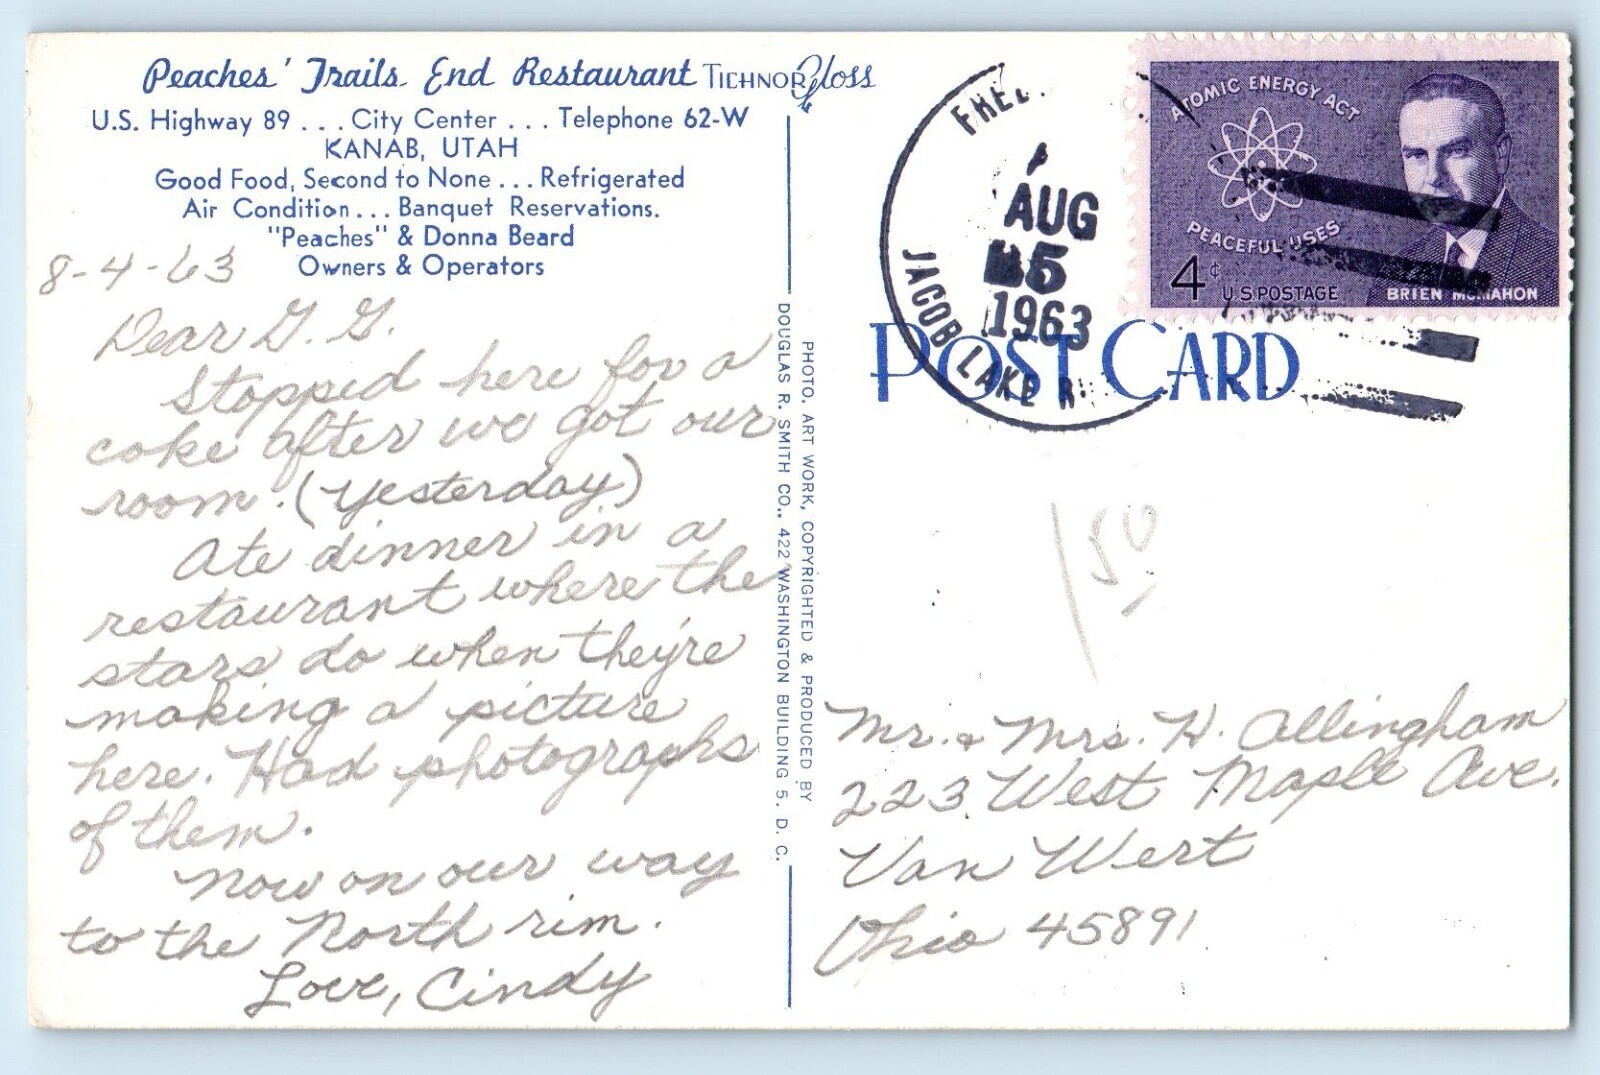 Peaches' Trails End Restaurant TICHNOR Gloss
U.S. Highway 89 ... City Center ... Telephone 62-W
KANAB, UTAH
Good Food, Second to None ... Refrigerated
Air Condition ... Banquet Reservations.
"Peaches" & Donna Beard
Owners & Operators
8-4-63
Dear G. G.
Stopped here for a
coke after we got our
room. (Yesterday)
Ate dinner in a
restaurant where the
stars do when they're
making a picture
here. Had photographs
of them.
Now on our way
to the North rim.
Love, Cindy
PHOTO, ART WORK, COPYRIGHTED & PRODUCED BY
DOUGLAS R. SMITH CO., 422 WASHINGTON BUILDING 5, D. C.
AUG
5
1963
JACOB LAKE
ATOMIC ENERGY ACT
PEACEFUL USES
4¢ U.S. POSTAGE
BRIEN McMAHON
POST CARD
150
Mr. & Mrs. H. Allingham
223 West Maple Ave.
Van Wert
Ohio 45891